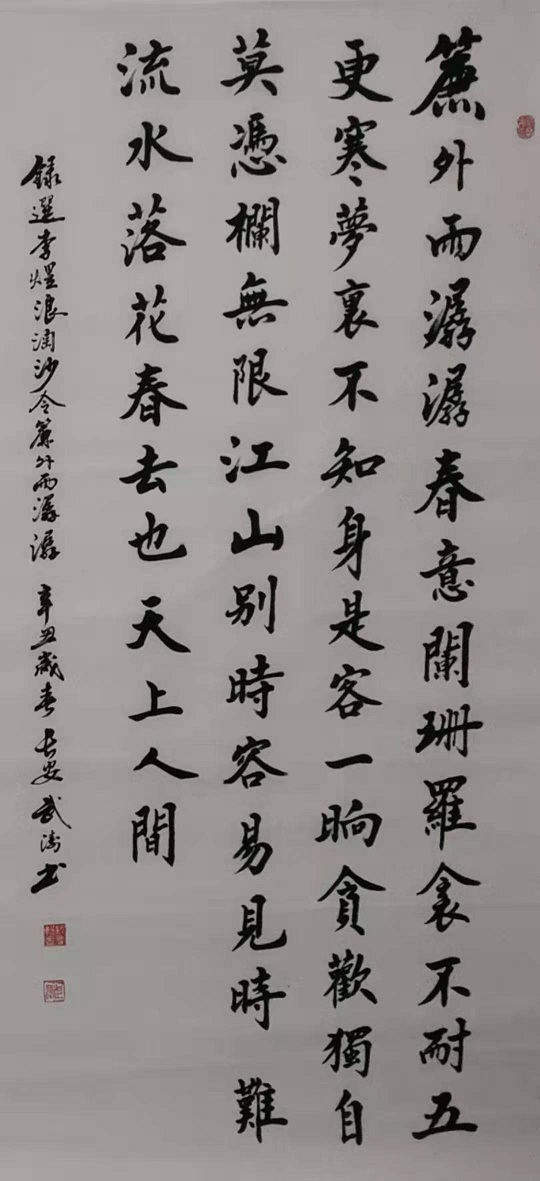 簾外雨潺潺春意闌珊羅衾不耐五
更寒夢裏不知身是客一晌貪歡獨自
莫憑欄無限江山别時容易見時難
流水落花春去也天上人間
錄選李煜浪淘沙令簾外雨潺潺 辛丑歲春 長安 武濤书